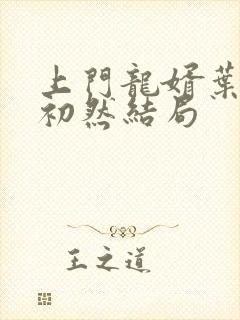 上門龍婿葉
初然結局
王之道